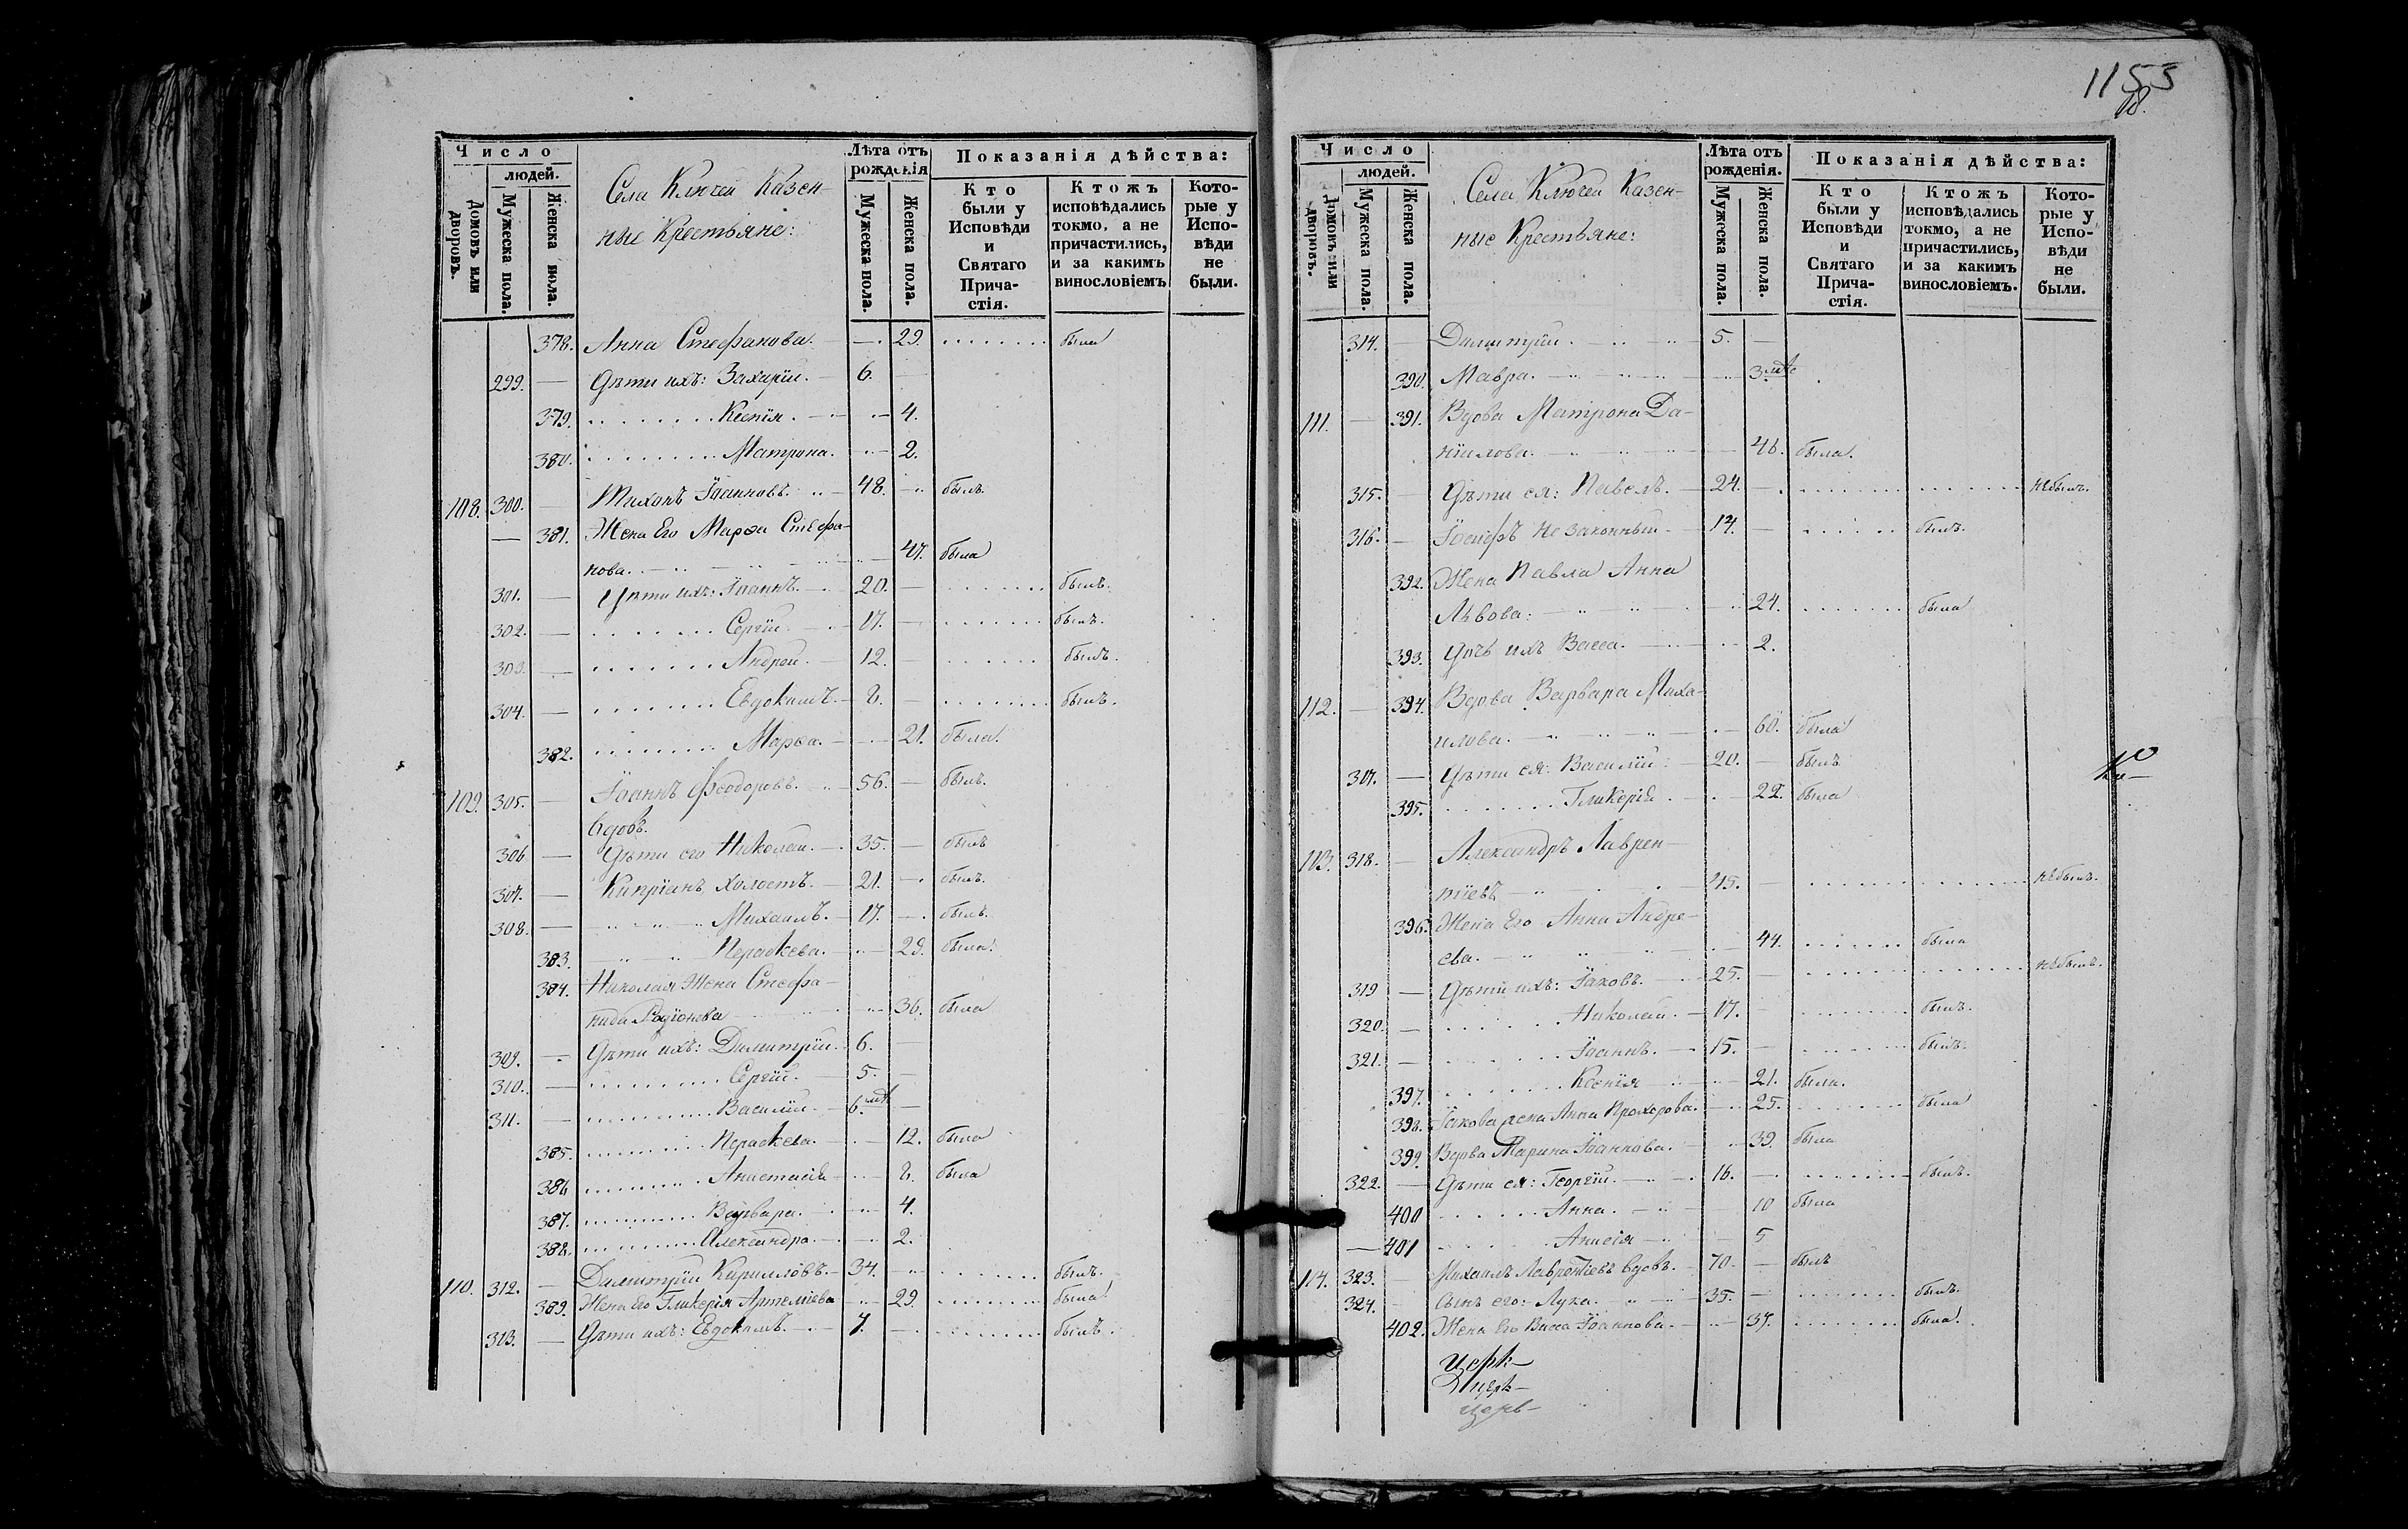 Число
людей.
Домовъ или дворовъ.
Мужеска пола.
Женска пола.
Села Ключей Казен-
ные Крестьяне:
Лѣта отъ
рожденія
Мужеска пола.
Женска пола.
Показанія дѣйства:
Кто были у Исповѣди и Святаго Прича-стія.
Ктожъ исповѣдались токмо, а не причастились, и за какимъ винословіемъ
Кото-рые у Испо-вѣди не были.
378. Анна Стефанова. 29. была
299. Дѣти ихъ: Захарій. 6.
379. Ксенія. 4.
380. Матрона. 2.
108. 300. Тихонъ Іоанновъ. 48. былъ.
381. Жена Его Марѳа Стефа-
нова. 47. была
301. Дѣти ихъ: Іоаннъ. 20. былъ.
302. Сергій 17. былъ.
303. Андрей. 12. былъ.
304. Евдокимъ. 8. былъ.
382. Марѳа. 21. была.
109. 305. Іоаннъ Феодоровъ. 56. былъ.
вдовъ.
306 Дѣти его Николай. 35. былъ
307. Кипріанъ холостъ. 21. былъ.
308. Михаилъ. 17. былъ.
383. Параскева. 29. была.
384. Николая Жена Стефа-
нида Родіонова 36. была
309. Дѣти ихъ: Димитрій. 6.
310. Сергій. 5.
311. Василій. 6. мѣ
385. Параскева. 12. была
386 Анастасія 8. была
387. Варвара. 4.
388. Александра. 2.
110. 312. Димитрій Кирилловъ. 34. былъ.
389. Жена Его Гликерія Артеміева 29. была
313. Дѣти ихъ: Евдокимъ. 7. былъ.
1153
18.
Число
людей.
Домовъ или дворовъ.
Мужеска пола.
Женска пола.
Села Ключей Казен-
ные Крестьяне:
Лѣта отъ
рожденія.
Мужеска пола.
Женска пола.
Показанія дѣйства:
Кто были у Исповѣди и Святаго Прича-стія.
Ктожъ исповѣдались токмо, а не причастились, и за какимъ винословіемъ.
Кото-рые у Испо-вѣди не были.
314. Димитрій. 5.
390. Мавра. 3 мѣс
111. 391. Вдова Матрона Да-
ніилова. 46. была.
315. Дѣти ея: Павелъ. 24. небылъ.
316. Іосифъ не законный 14. былъ.
392. Жена Павла Анна
Львова: 24. была
393. Дочь ихъ Васса. 2.
112. 394. Вдова Варвара Миха-
илова. 60. была
317. Дѣти ея: Василій: 20. былъ
395. Гликерія 22. была
113. 318. Александръ Лаврен-
тіевъ 45. небылъ.
396. Жена Его Анна Андре-
ева. 44. была
319 Дѣти ихъ: Іаковъ. 25. небылъ.
320. Николай. 17. былъ.
321. Іоаннъ. 15. былъ.
397. Ксенія 21. была.
398. Іакова жена Анна Прохорова. 25. была
399. Вдова Марина Іоаннова. 39. была
322. Дѣти ея: Георгій. 16. былъ.
400 Анна. 10 была
401 Анисія 5
114. 323. Михаилъ Лаврентіевъ вдовъ. 70. былъ
324. Сынъ его: Лука. 35. былъ.
402. Жена Его Васса Іоаннова. 37. была.
церк-
церк-
церк-